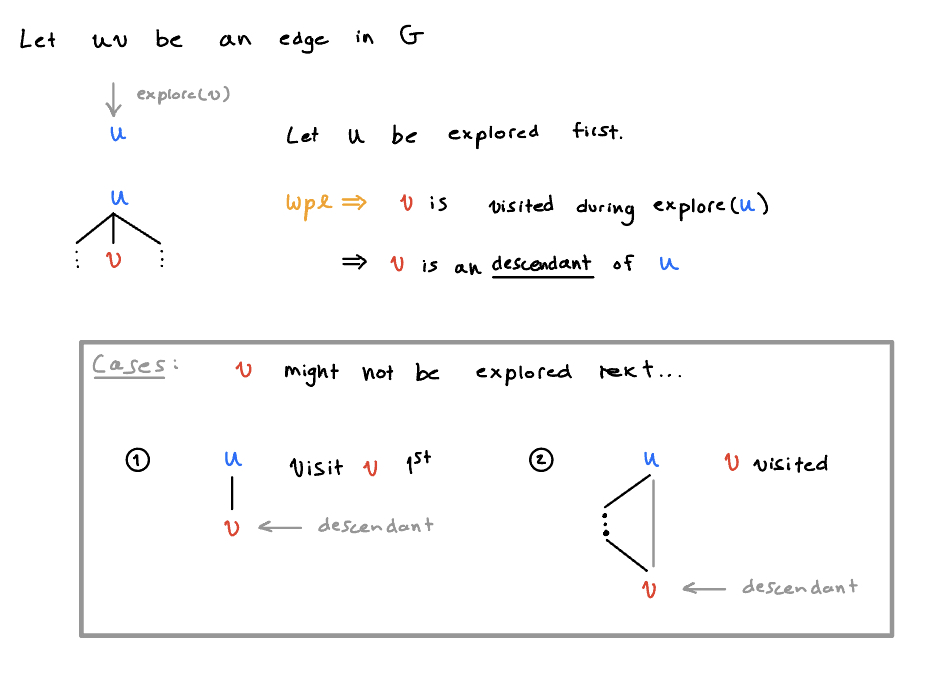 Let uv be an edge in G
explore(v)
u
Let u be explored first.
u
wpl ⇒ v is visited during explore(u)
v
⇒ v is an descendant of u
Cases: v might not be explored next...
① u Visit v 1st
v ← descendant
② u v visited
v ← descendant